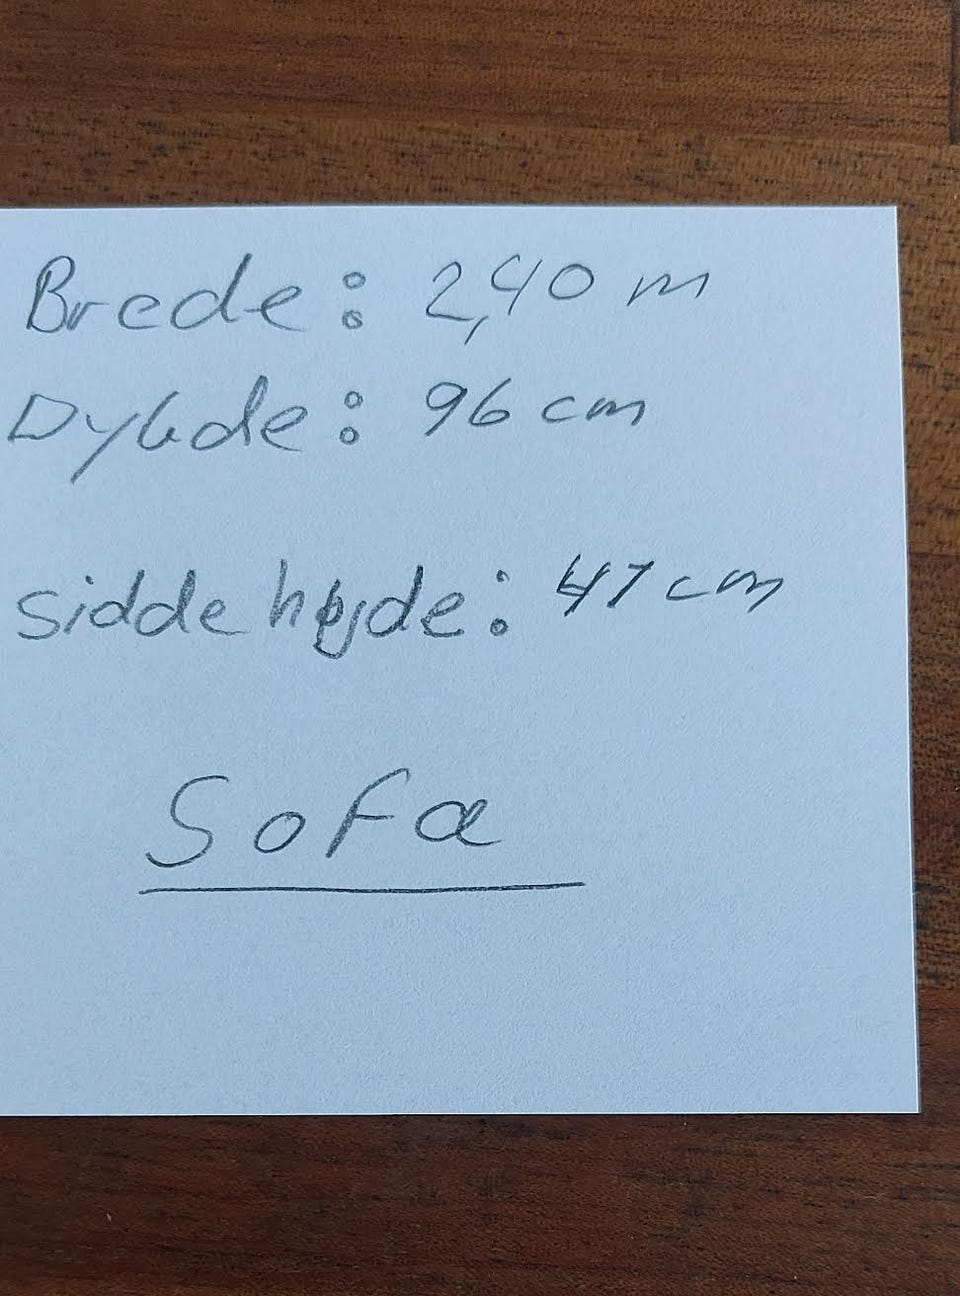 Brede: 2,40 m
Dybde: 96 cm
sidde højde: 47 cm
Sofa